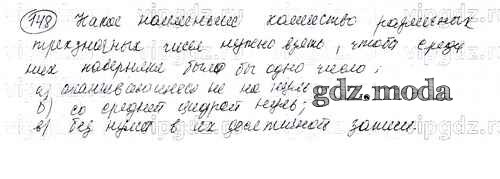 748 Какое наименьшее количество различных
трехзначных чисел нужно взять, чтобы среди
них наверняка было бы одно число:
а) оканчивающееся не на нуль;
б) со средней цифрой нуль;
в) без нулей в их десятичной записи.
gdz.moda